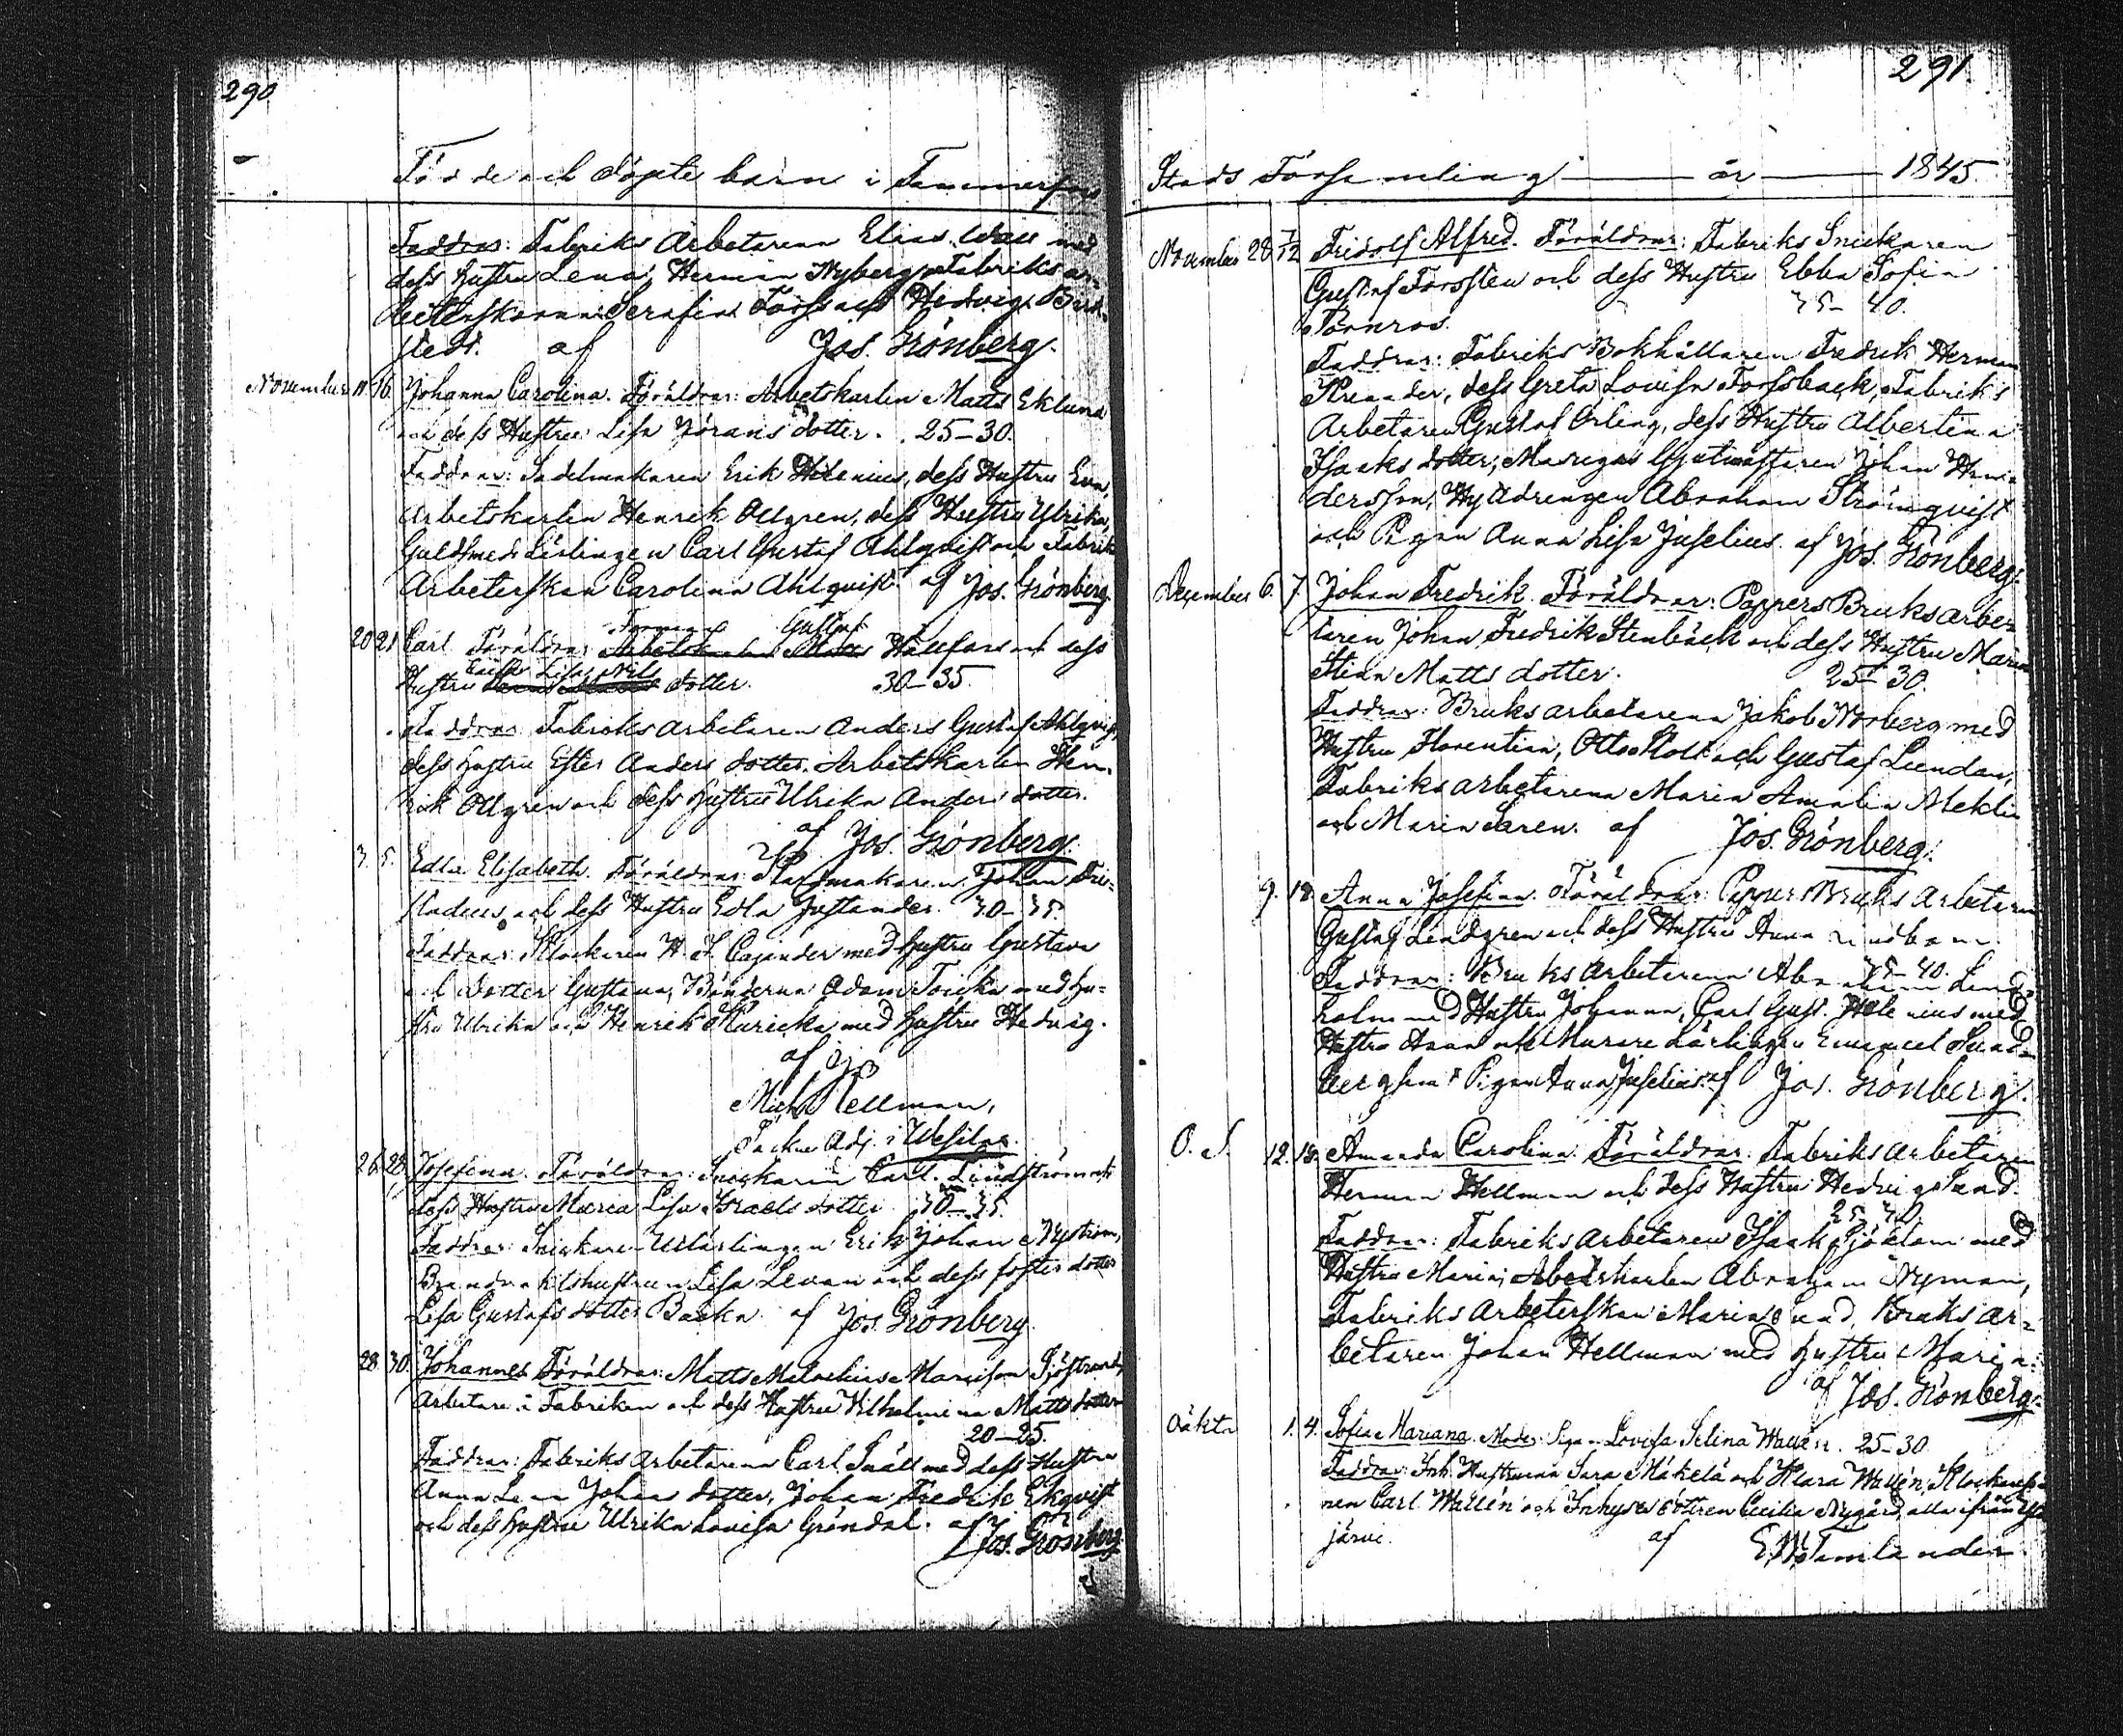 290
Födde och döpte barn i Tammerfors
Faddrar: Fabriks Arbetaren Elias Wall med
dess hustru Lena, Herman Nyberg, Fabriks ar-
beterskorna Serafina Forss och Hedvig
stedt. af Jos. Grönberg.
November 11. 16. Johanna Carolina. Föräldrar: Arbetskarlen Matts Eklund
och dess Hustru Lisa Jörans dotter. 25–30.
Faddrar: Sadelmakaren Erik Helenius, dess Hustru Eva,
Arbetskarlen Henrik Ollgren, dess Hustru Ulrika,
Guldsmeds Lärlingen Carl Gustaf Ahlqvist och Fabrik
Arbeterskan Carolina Ahlqvist. af Jos. Grönberg.
Gustaf
20 21 Carl Föräldrar Hällfors och dess
Lisa Nils
Hustru dotter. 30–35.
Faddrar: Fabriks arbetaren Anders Gustaf Ahlqvist,
dess hustru Ester Anders dotter. Arbetskarlen Hen-
rik Ollgren och dess hustru Ulrika Anders dotter.
af Jos. Grönberg.
3. 5. Edla Elisabeth. Föräldrar: Johan
och dess Hustru Edla Justander. 30–35.
Faddrar: Klockaren H. J. Cajander med hustru Gustava
och dotter Gustava, Bönderna Adam Toicka med hu-
stru Ulrika och Henrik med hustru Hedvig.
af
Mich. Hellman,
Adj. i Wesilax.
26. 28. Josefina. Föräldrar: Snickaren Carl Lindström och
dess Hustru Maria Lisa Israels dotter 30–35.
Faddrar: Snickare Utlärlingen Erik Johan Nyström,
Brandvaktshustrun Lisa Levan och dess foster dotter
Lisa Gustafs dotter Backa. af Jos. Grönberg.
28. 30. Johannes Föräldrar: Matts
Arbetare i Fabriken och dess Hustru Wilhelmina Matts dotter
20–25.
Faddrar: Fabriks Arbetaren Carl Snäll med dess Hustru
Anna Lena Johans dotter, Johan Fredrik Ekqvist
och dess hustru Ulrika Lovisa Gröndal. af
Jos. Grönberg
291.
Stads Församling — år — 1845.
November 28 7/12 Fridolf Alfred. Föräldrar: Fabriks Snickaren
Gustaf Forsstén och dess Hustru Ebba Sofia
Törnros. 35–40.
Faddrar: Fabriks Bokhållaren Fredrik Herman
dess Greta Lovisa Forssback, Fabriks
Arbetaren Gustaf Örling, dess Hustru Albertina
Isaaks dotter, Johan Hen-
dersson, Abraham Strömqvist
och Pigan Anna Lisa Juselius. af Jos. Grönberg.
December 6. 7. Johan Fredrik. Föräldrar: Pappers Bruks arbe-
taren Johan Fredrik Stenbäck och dess Hustru Maria
Stina Matts dotter. 25–30.
Faddrar: Bruks arbetarena Jakob Norberg med
Hustru Florentina, Otto och Gustaf Lundan,
Fabriks arbetarena Maria Amalia Meklin
och Maria Saren. af Jos. Grönberg.
9. 18. Anna Josefina. Föräldrar: Pappers Bruks Arbetaren
Gustaf Lindgren och dess Hustru Anna
35–40.
Faddrar: Bruks Arbetarena Abraham Lind-
holm med Hustru Johanna, Carl Gust. Helenius med
Hustru Anna och Murare Lärlingen Emanuel Sund-
berg samt Pigan Anna Juselius. af Jos. Grönberg.
O. S. 12. 18. Amanda Carolina. Föräldrar: Fabriks Arbetaren
Herman Hellman och dess Hustru Hedvig Sand.
25–30
Faddrar: Fabriks Arbetaren Isaak Sjöblom med
Hustru Maria, Arbetskarlen Abraham Nyman,
Fabriks Arbeterskan Maria Sund, Bruks Ar-
betaren Johan Hellman med hustru Maria.
af Jos. Grönberg.
Oäkta 1. 4. Sofia Mariana. Moder: Pigan Lovisa Selina Wallén. 25–30.
Faddrar: Inh. Hustrurna Sara Mäkelä och Klara Wallén,
Carl Wallén och Inhyses dottren Cecilia Nygård, alla ifrån
järvi. af